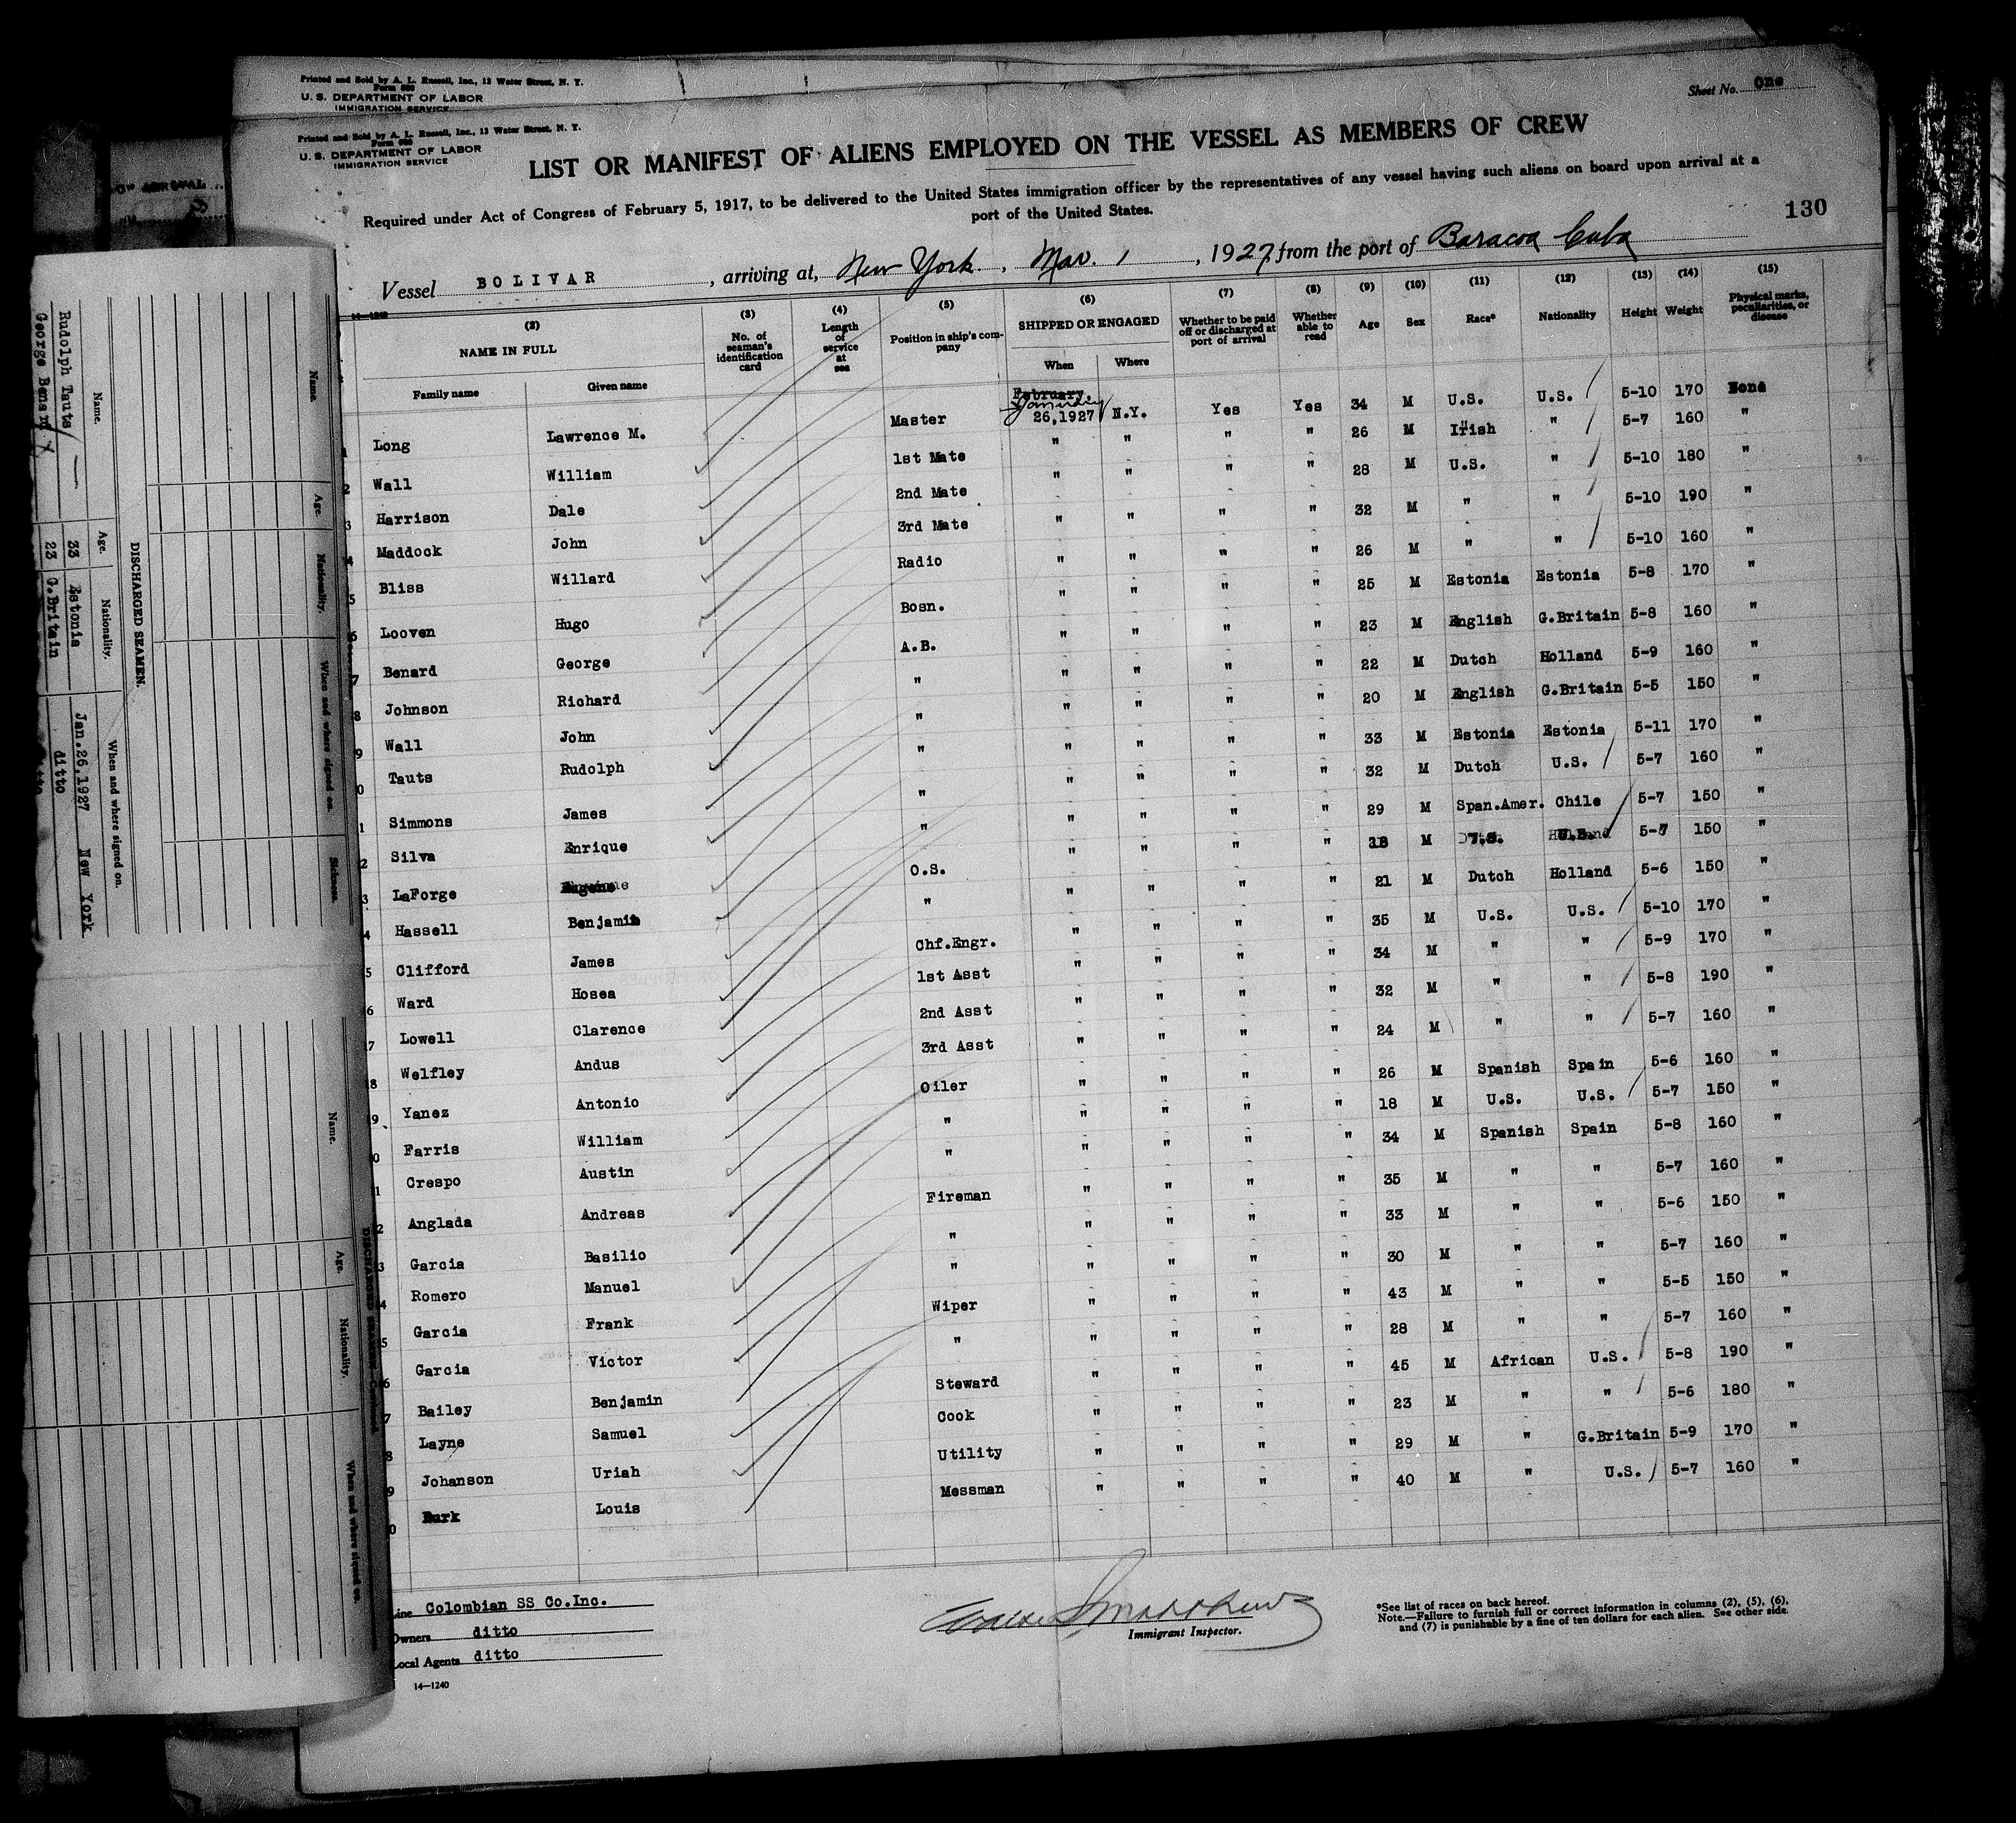 Printed and Sold by A. L. Russell, Inc., 13 Water Street, N. Y.
Form 680
U. S. DEPARTMENT OF LABOR
IMMIGRATION SERVICE
Printed and Sold by A. L. Russell, Inc., 13 Water Street, N. Y.
Form 680
U. S. DEPARTMENT OF LABOR
IMMIGRATION SERVICE
Sheet No. One
LIST OR MANIFEST OF ALIENS EMPLOYED ON THE VESSEL AS MEMBERS OF CREW
Required under Act of Congress of February 5, 1917, to be delivered to the United States immigration officer by the representatives of any vessel having such aliens on board upon arrival at a
port of the United States.
130
Vessel BOLIVAR, arriving at, New York, Mar. 1, 1927, from the port of Baracoa Cuba
14—1240
(2) (3) (4) (5) (6) (7) (8) (9) (10) (11) (12) (13) (14) (15)
NAME IN FULL No. of seaman's identification card Length of service at sea Position in ship's company SHIPPED OR ENGAGED Whether to be paid off or discharged at port of arrival Whether able to read Age Sex Race* Nationality Height Weight Physical marks, peculiarities, or disease
Family name Given name When Where
February
January
1 Long Lawrence M. Master 26,1927 N.Y. Yes Yes 34 M U.S. U.S. 5-10 170 None
2 Wall William 1st Mate " " " " 26 M Irish " 5-7 160 "
3 Harrison Dale 2nd Mate " " " " 28 M U.S. " 5-10 180 "
4 Maddock John 3rd Mate " " " " 32 M " " 5-10 190 "
5 Bliss Willard Radio " " " " 26 M " " 5-10 160 "
6 Looven Hugo Bosn. " " " " 25 M Estonia Estonia 5-8 170 "
7 Benard George A.B. " " " " 23 M English G.Britain 5-8 160 "
8 Johnson Richard " " " " " 22 M Dutch Holland 5-9 160 "
9 Wall John " " " " " 20 M English G.Britain 5-5 150 "
0 Tauts Rudolph " " " " " 33 M Estonia Estonia 5-11 170 "
1 Simmons James " " " " " 32 M Dutch U.S. 5-7 160 "
2 Silva Enrique " " " " " 29 M Span.Amer. Chile 5-7 150 "
3 LaForge O.S. " " " " 18 M U.S. U.S. 5-7 150 "
4 Hassell Benjamin " " " " " 21 M Dutch Holland 5-6 150 "
5 Clifford James Chf.Engr. " " " " 35 M U.S. U.S. 5-10 170 "
6 Ward Hosea 1st Asst " " " " 34 M " " 5-9 170 "
17 Lowell Clarence 2nd Asst " " " " 32 M " " 5-8 190 "
8 Welfley Andus 3rd Asst " " " " 24 M " " 5-7 160 "
9 Yanez Antonio Oiler " " " " 26 M Spanish Spain 5-6 160 "
0 Farris William " " " " " 18 M U.S. U.S. 5-7 150 "
1 Crespo Austin " " " " " 34 M Spanish Spain 5-8 160 "
2 Anglada Andreas Fireman " " " " 35 M " " 5-7 160 "
3 Garcia Basilio " " " " " 33 M " " 5-6 150 "
4 Romero Manuel " " " " " 30 M " " 5-7 160 "
5 Garcia Frank Wiper " " " " 43 M " " 5-5 150 "
6 Garcia Victor " " " " " 28 M " " 5-7 160 "
7 Bailey Benjamin Steward " " " " 45 M African U.S. 5-8 190 "
8 Layne Samuel Cook " " " " 23 M " " 5-6 180 "
9 Johanson Uriah Utility " " " " 29 M " G.Britain 5-9 170 "
0 Burk Louis Messman " " " " 40 M " U.S. 5-7 160 "
Line Colombian SS Co.Inc.
Owners ditto
Local Agents ditto
14—1240
Immigrant Inspector.
*See list of races on back hereof.
Note.—Failure to furnish full or correct information in columns (2), (5), (6),
and (7) is punishable by a fine of ten dollars for each alien. See other side.
DISCHARGED SEAMEN.
Name. Age. Nationality. When and where signed on.
Rudolph Tauts 33 Estonia Jan.26,1927 New York
George Benard 23 G.Britain ditto
Name. Age. Nationality. When and where signed on. Sickness.
Name. Age. Nationality. When and where signed on.